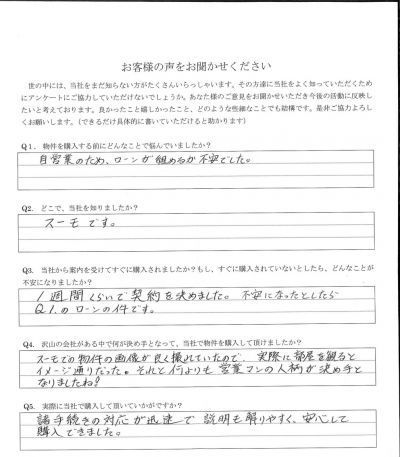 お客様の声をお聞かせください
世の中には、当社をまだ知らない方がたくさんいらっしゃいます。その方達に当社をよく知っていただくため
にアンケートにご協力していただけないでしょうか。あなた様のご意見をお聞かせいただき今後の活動に反映し
たいと考えております。良かったこと嬉しかったこと、どのような些細なことでも結構です。是非ご協力よろし
くお願いします。（できるだけ具体的に書いていただけると助かります）
Q1. 物件を購入する前にどんなことで悩んでいましたか？
自営業のため、ローンが組めるか不安でした。
Q2. どこで、当社を知りましたか？
スーモです。
Q3. 当社から案内を受けてすぐに購入されましたか？もし、すぐに購入されていないとしたら、どんなことが
不安になりましたか？
1週間くらいで契約を決めました。不安になったとしたら
Q1.のローンの件です。
Q4. 沢山の会社がある中で何が決め手となって、当社で物件を購入して頂けましたか？
スーモでの物件の画像が良く撮れていたので、実際に部屋を観ると
イメージ通りだった。それと何よりも営業マンの人柄が決め手と
なりましたね？
Q5. 実際に当社で購入して頂いていかがですか？
諸手続きの対応が迅速で説明も解りやすく、安心して
購入できました。